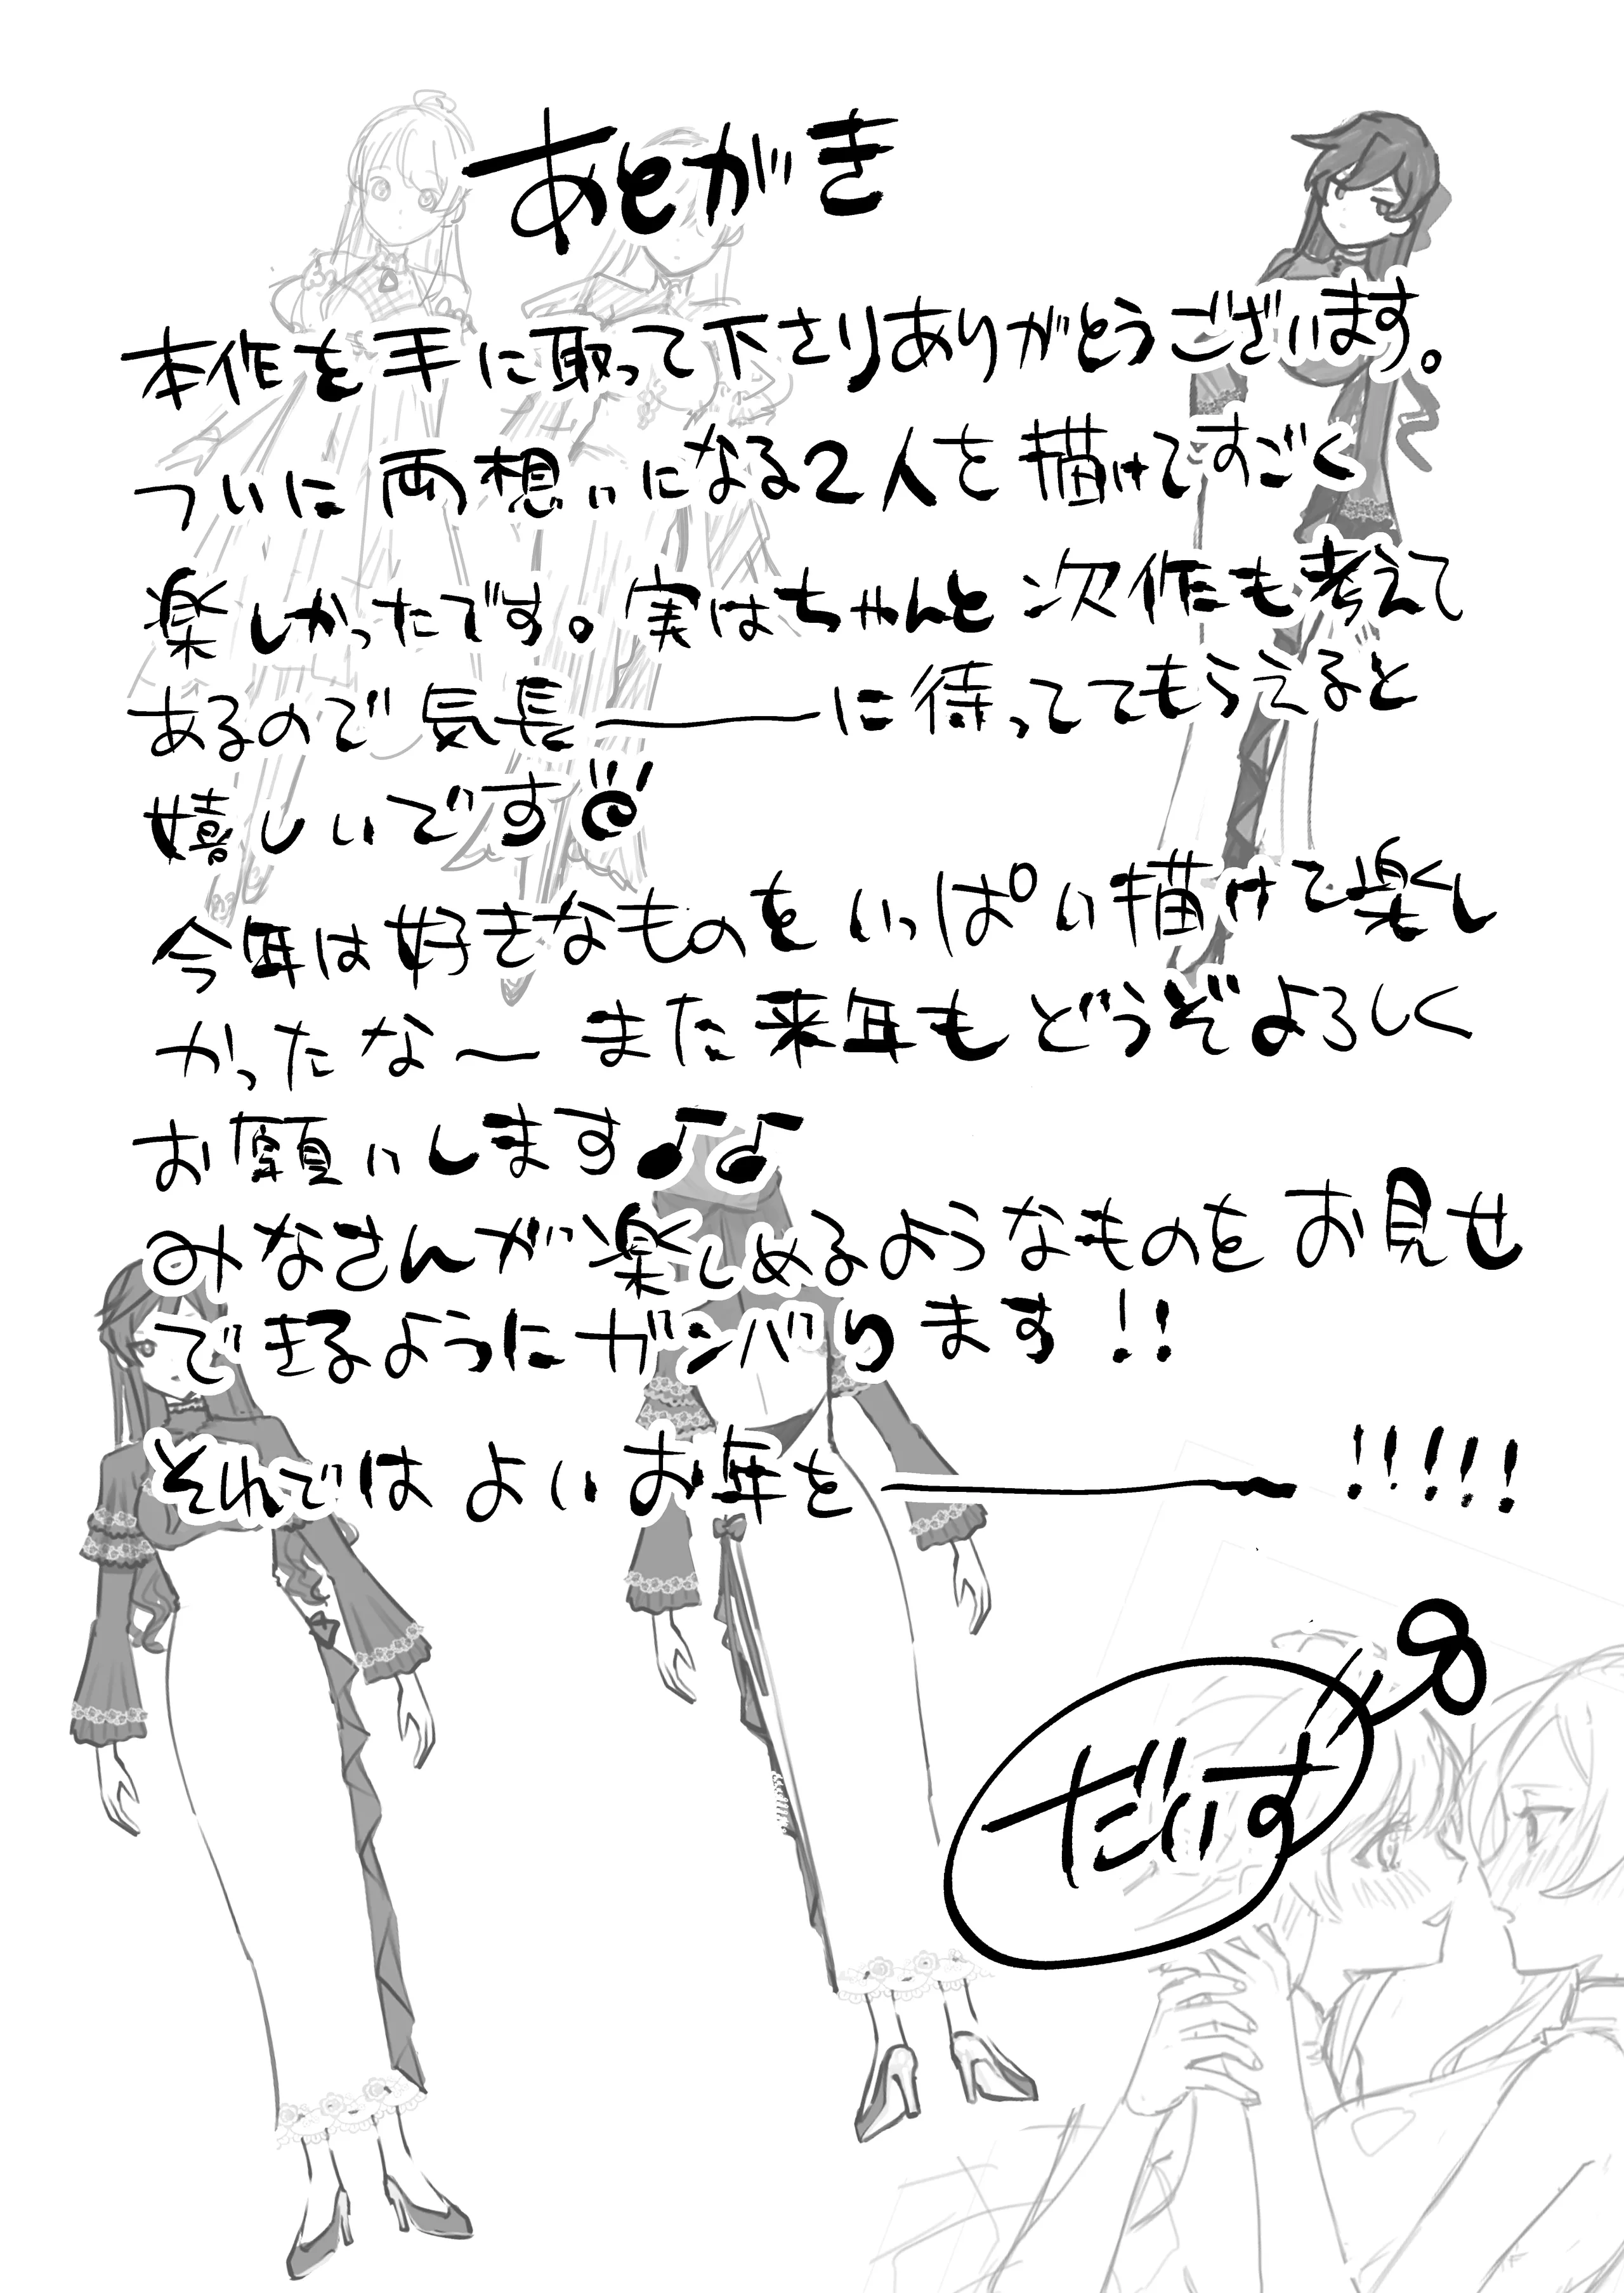 あとがき
本作を手に取って下さりありがとうございます。
ついに両想いになる2人を描けてすごく
楽しかったです。実はちゃんと次作も考えて
あるので気長——に待っててもらえると
嬉しいです
今年は好きなものをいっぱい描けて楽し
かったな〜また来年もどうぞよろしく
お願いします♪♪
みなさんが楽しめるようなものをお見せ
できるようにガンバります!!
それではよいお年を———!!!!!
だいす